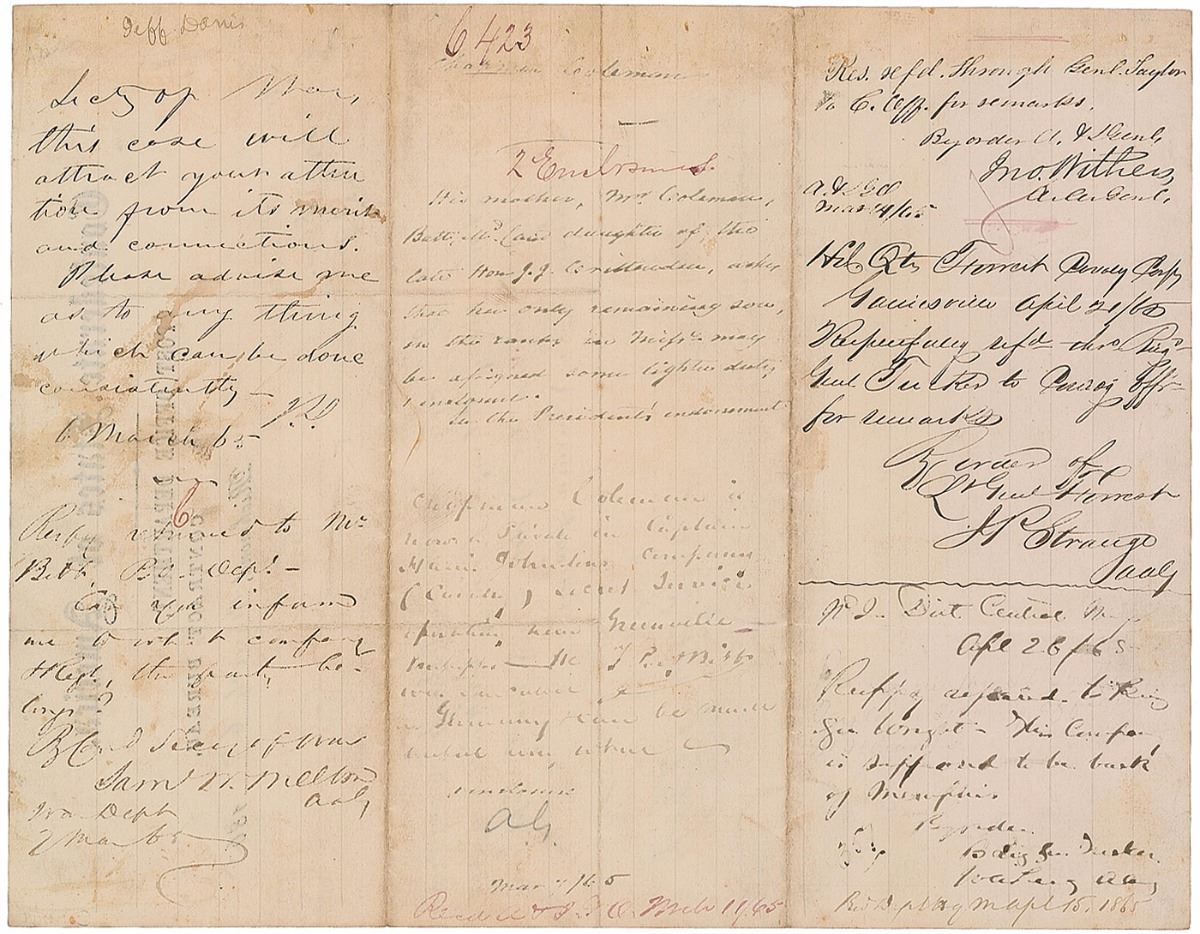 Jeff Davis
Secty of War,
this case will
attract your atten
tion from its merits
and connections.
Please advise me
as to any thing
which can be done
consistently—
J.D.
6 March 65
6
Respy returned to Mr
Bibb, P.O. Dept—
Can you inform
me to what company
& Regt, the party be-
longs?
By Ord Secy of War
Saml W. Melton
AAG
War Dept
7 Mar 65
6423
Chapman Coleman
2 Enclosures.
His mother, Mrs Coleman,
Balto, Md. (and daughter of the
late Hon J.J. Crittenden, asks
that her only remaining son,
in the ranks in Missi may
be assigned some lighter duty,
enclosure.
the Presidents endorsement
Chapman Coleman is
now a Private in Captain
company
Secret Service
operating near Greenville
Memphis
Bibb
be made
useful any where
enclosure
AG
Mar 65
Recd A & I G O. Mch 11/65
Res. refd. through Genl. Taylor
to C. Off. for remarks.
By order A. & I Genl,
Jno. Withers
A. A. Genl,
A & IGO
Mar 14/65
Hd Qts Forrest Cavaly Corps
Gainesville April 21/65
Respectfully refd thro Brig
Genl Tucker to Comdg Offr
for remarks
By order of
Lt Genl Forrest
J P Strange
AAG
Dist Central
Apl 28/65
Respy referred to Brig
Gen Wright— This Compa
is supposed to be back
of Memphis
By order
Brig Gen Tucker
AAG
1865
POST OFFICE DEPARTMENT
CONTRACT BUREAU.
Confederate States of America